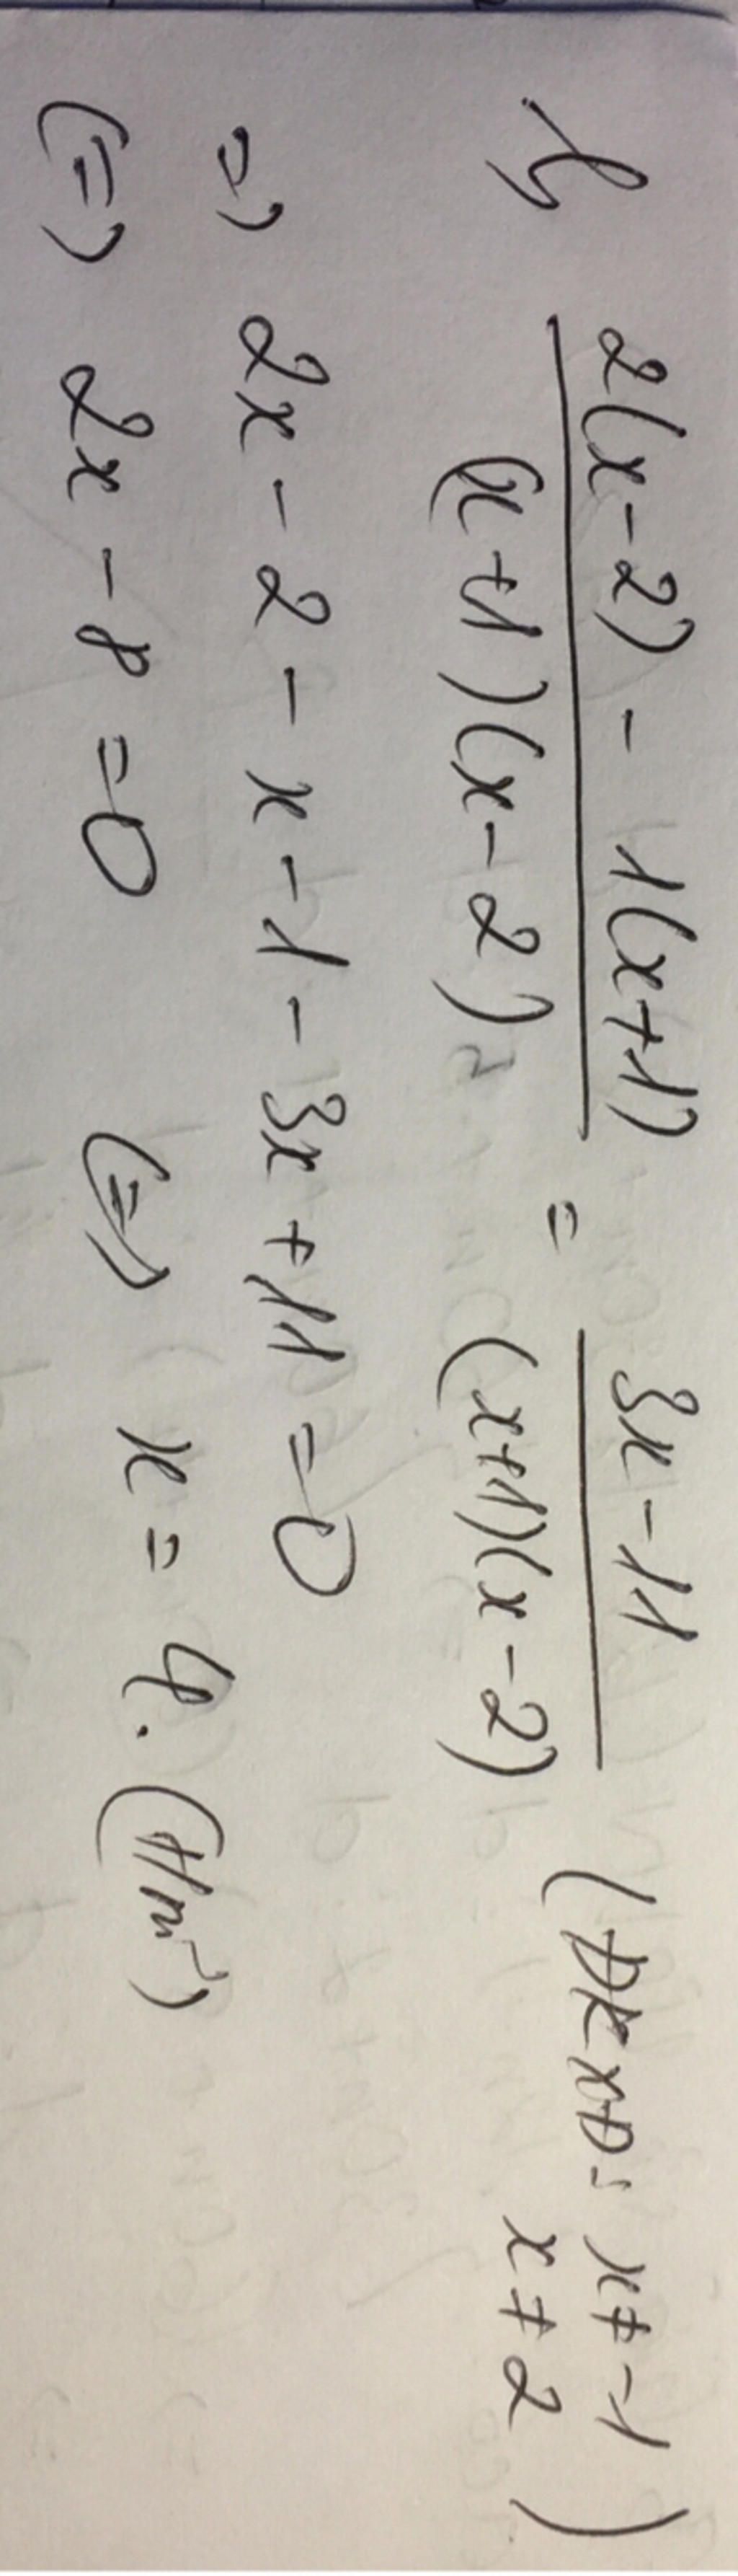 b, 2(x-2) - 1(x+1) / (x+1)(x-2) = 3x-11 / (x+1)(x-2) (ĐKXĐ: x≠-1 x≠2)
=> 2x-2-x-1-3x+11=0
(=) 2x-8=0 (=) x=4. (t/m²)